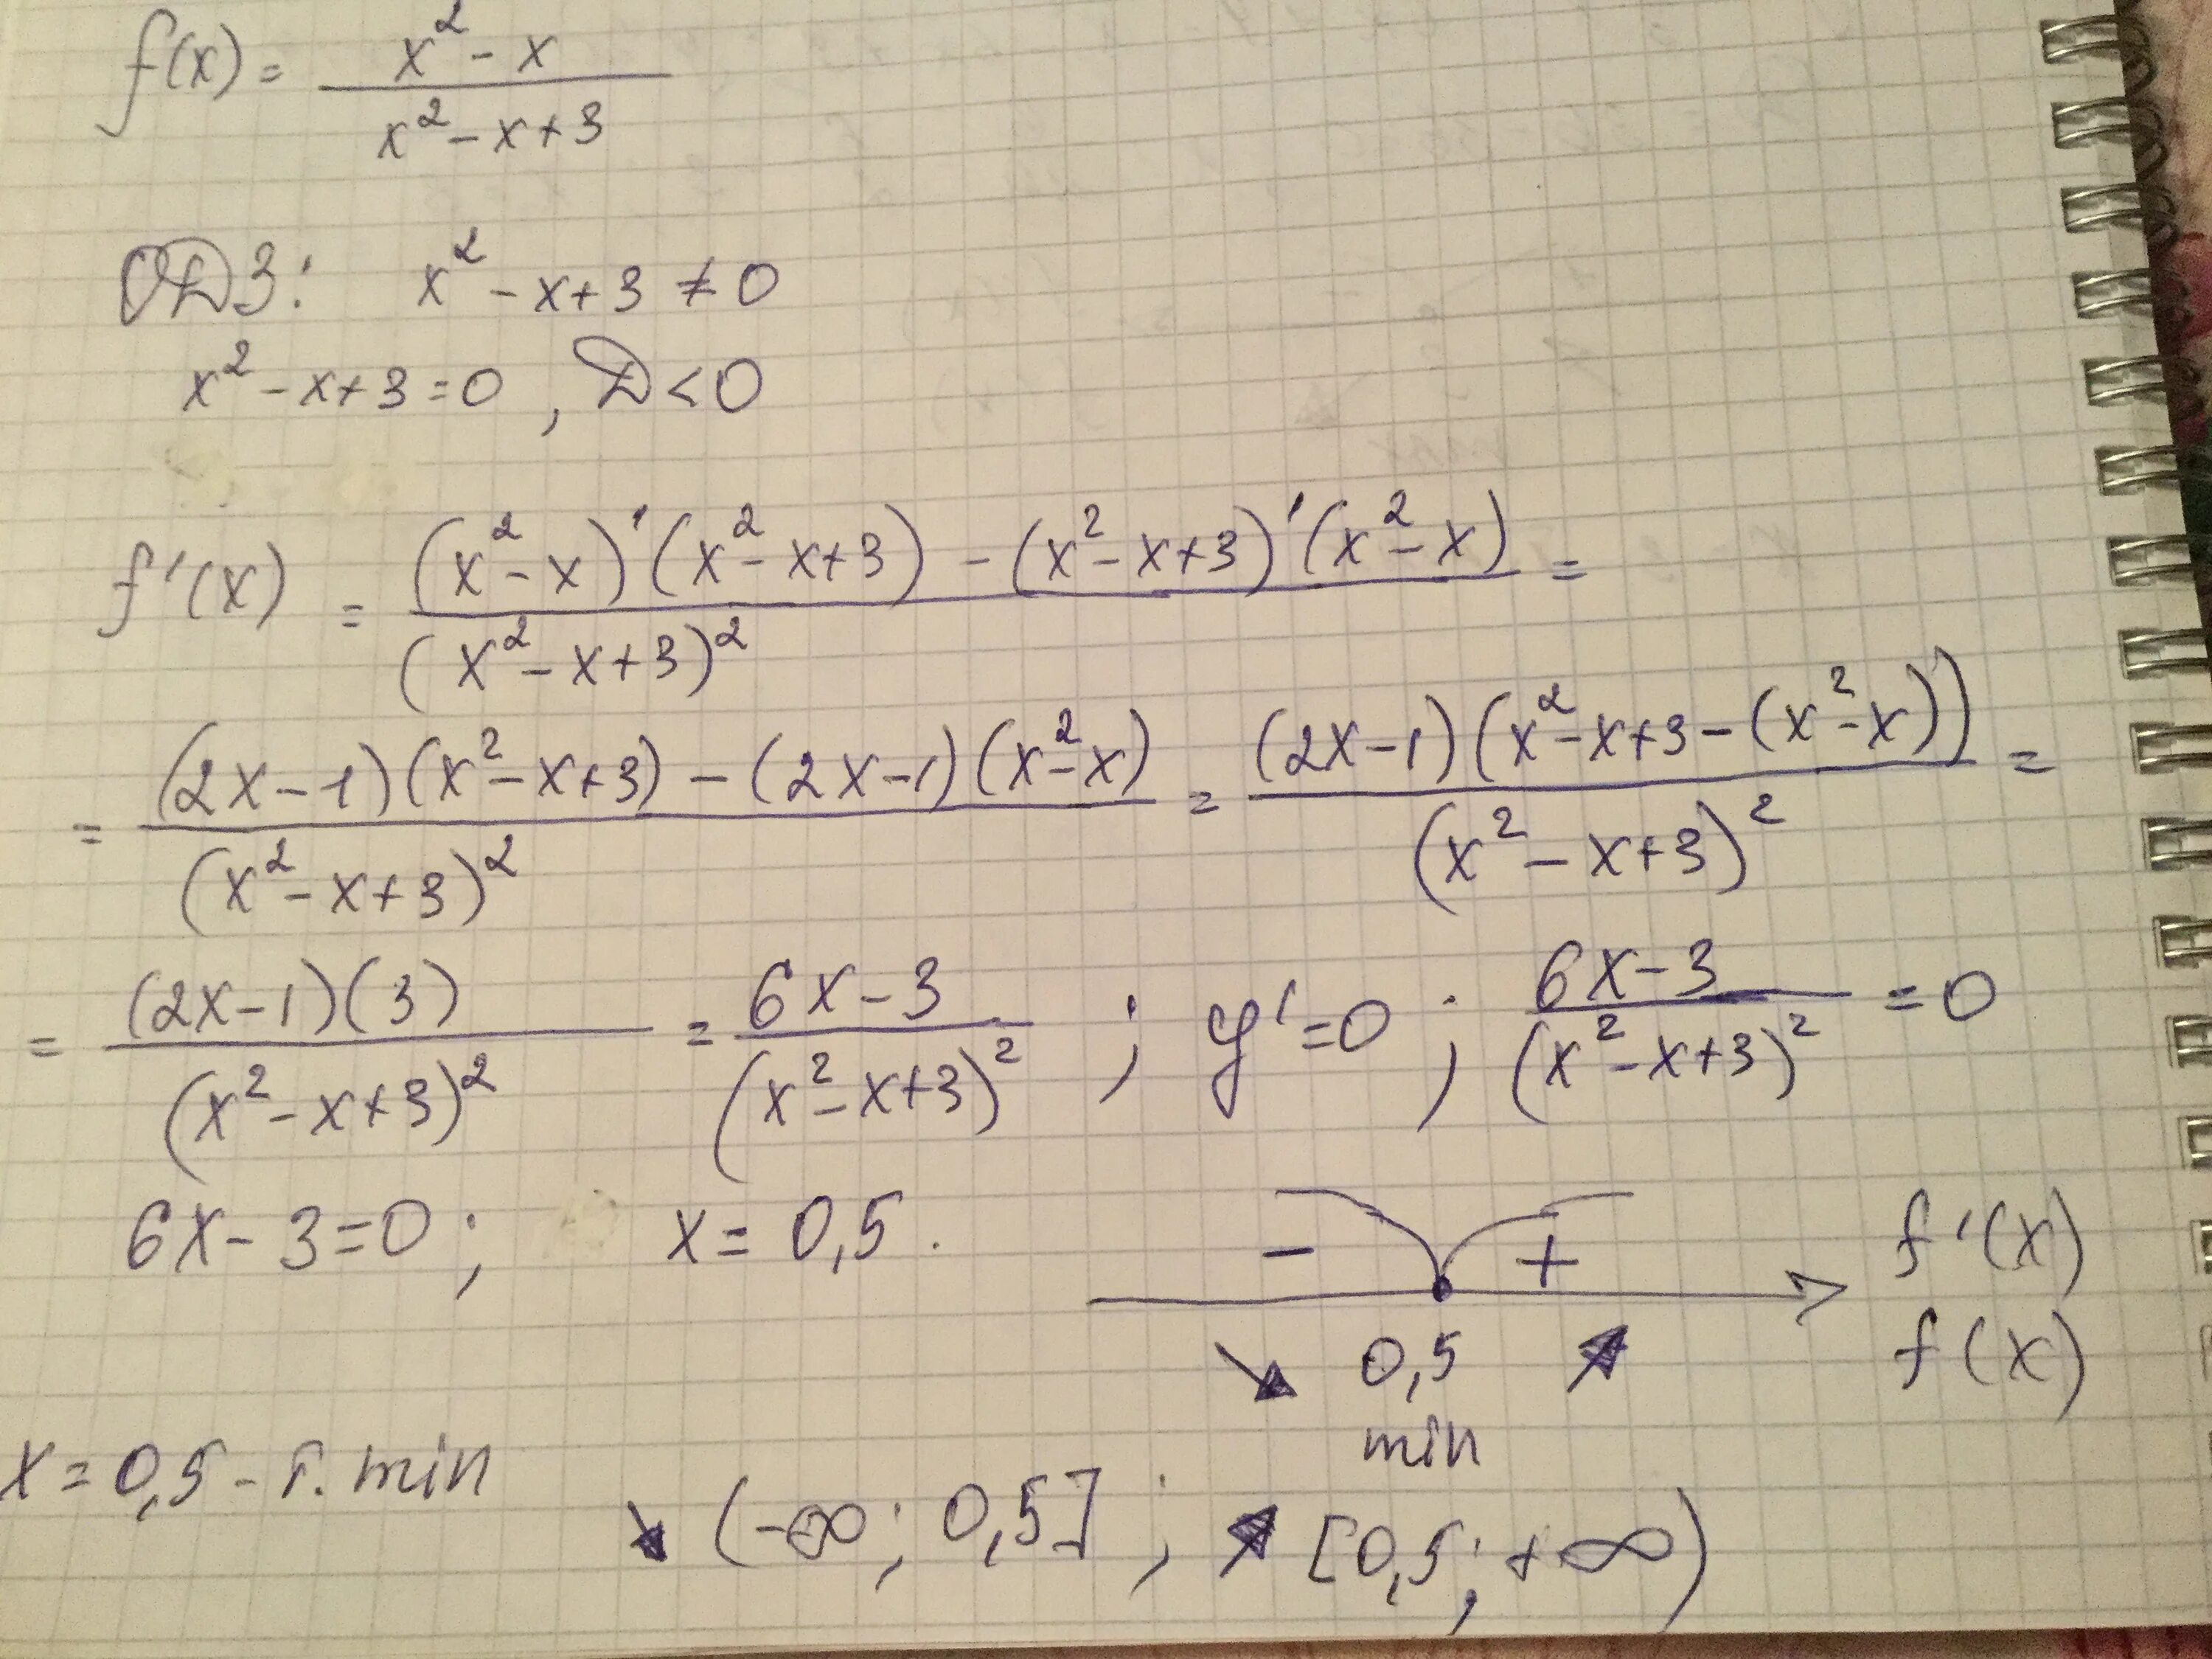 f(x) = (x² - x)/(x² - x + 3)
ОДЗ: x² - x + 3 ≠ 0
x² - x + 3 = 0 , D < 0
f'(x) = ((x² - x)'(x² - x + 3) - (x² - x + 3)'(x² - x))/(x² - x + 3)² =
= ((2x - 1)(x² - x + 3) - (2x - 1)(x² - x))/(x² - x + 3)² = ((2x - 1)(x² - x + 3 - (x² - x)))/(x² - x + 3)² =
= ((2x - 1)(3))/(x² - x + 3)² = (6x - 3)/(x² - x + 3)² ; y' = 0 ; (6x - 3)/(x² - x + 3)² = 0
6x - 3 = 0 ; x = 0,5 .
- + f'(x)
↘ 0,5 ↗ f(x)
min
x = 0,5 - т. min
↘ (-∞; 0,5] ; ↗ [0,5; +∞)